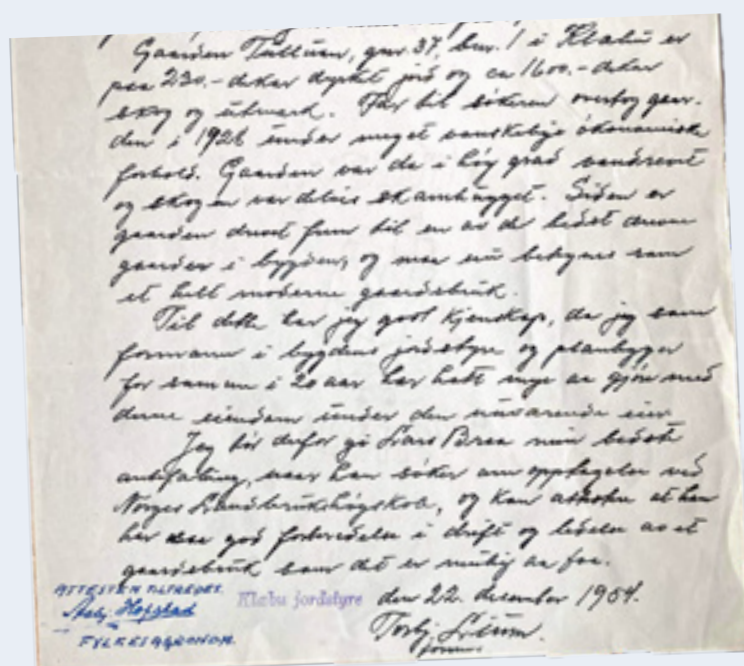 Gaarden Tulluan, gnr. 37, bnr. 1 i Klæbu er
paa 230.- dekar dyrket jord og ca 1600.- dekar
skog og utmark. Far til søkeren overtog gaar-
den i 1926 under meget vanskelige økonomiske
forhold. Gaarden var da i høy grad vandrevet
og skogen var delvis skamhugget. Siden er
gaarden drevet frem til en av de bedst drevne
gaarder i bygden, og maa nu betegnes som
et helt moderne gaardsbruk.
Til dette har jeg godt kjenskap, da jeg som
formann i bygdens jordstyre og planbygger
for samme i 20 aar har hatt mye aa gjøre med
denne eiendom under den nåværende eier
Jeg tør derfor gi Lars Brea min bedste
anbefaling, naar han søker om opptagelse ved
Norges Landbrukshøgskole, og kan attestere at han
har saa god forberedelse i drift og ledelse av et
gaardsbruk som det er mulig aa faa.
Klæbu jordstyre den 22. desember 1954.
Torbj.
formann
ATTESTEN TILTREDES.
Hofstad
FYLKESAGRONOM.